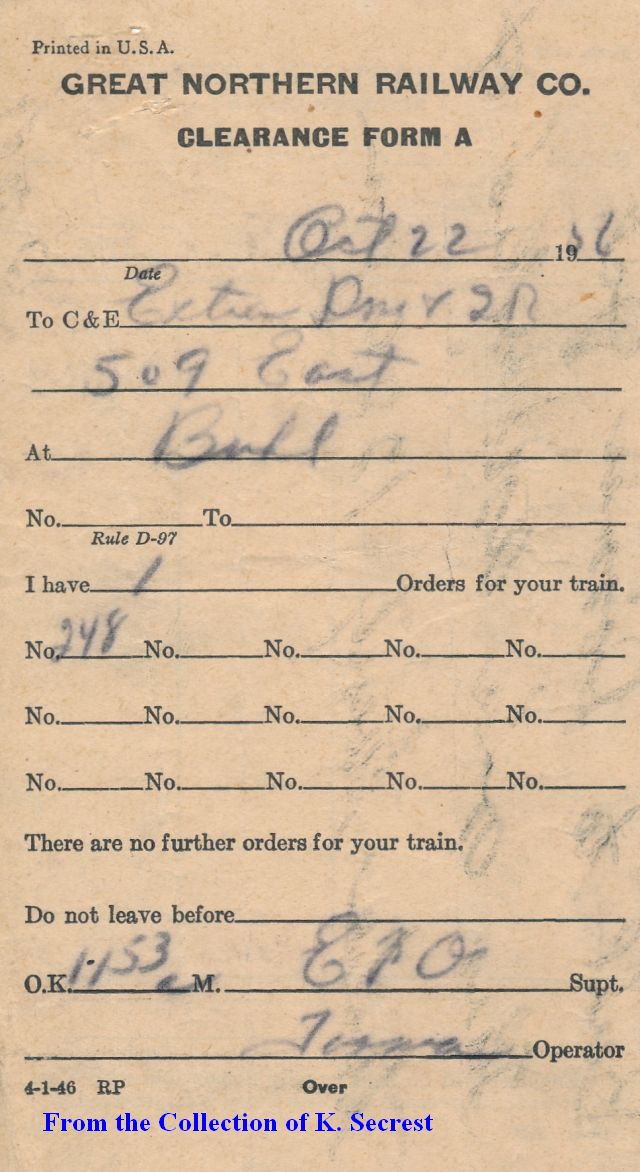 Printed in U.S.A.
GREAT NORTHERN RAILWAY CO.
CLEARANCE FORM A
Oct 22 1956
Date
To C & E Extra
509 East
At Buhl
No. To
Rule D-97
I have 1 Orders for your train.
No. 248 No. No. No. No.
No. No. No. No. No.
No. No. No. No. No.
There are no further orders for your train.
Do not leave before
O.K. 1153 a M. Supt.
Operator
4-1-46 RP Over
From the Collection of K. Secrest